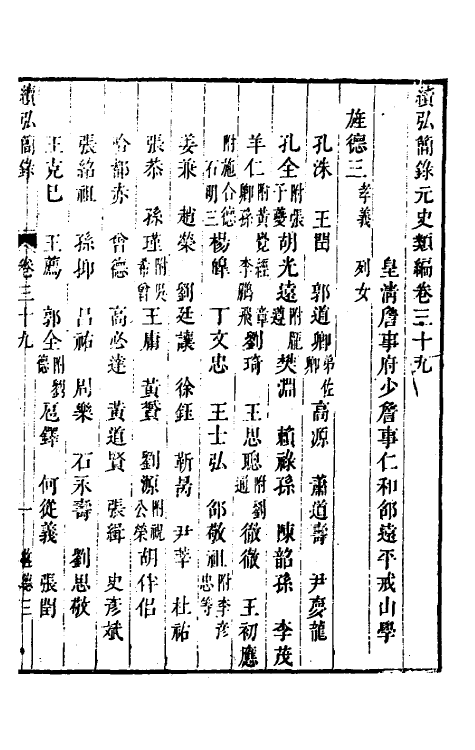 續弘簡錄元史類編卷三十九
皇清詹事府少詹事仁和邵遠平戒山學
旌德三 孝義 列女
孔洙 王閏 郭道卿弟佐卿 高源 蕭道壽 尹夢龍
孔全附張于夔 胡光遠附龐遵 樊淵 賴祿孫 陳韶孫 李茂
羊仁附黃覺經章卿孫 李鵬飛 劉琦 王思聰附劉通 徹徹 王初應
附施合德石明三 楊皞 丁文忠 王士弘 郃敬祖附李彥忠等
姜兼 趙榮 劉廷讓 徐鈺 靳昺 尹莘 杜祐
張恭 孫瑾附吳希曾 王庸 黃贇 劉源附祝公榮 胡伴侶
哈都赤 曾德 高必達 黃道賢 張緝 史彥斌
張紹祖 孫抑 呂祐 周樂 石永壽 劉思敬
王克己 王薦 郭全附劉德 扈鐸 何從義 張閏
續弘簡錄 卷三十九 一 旌德三